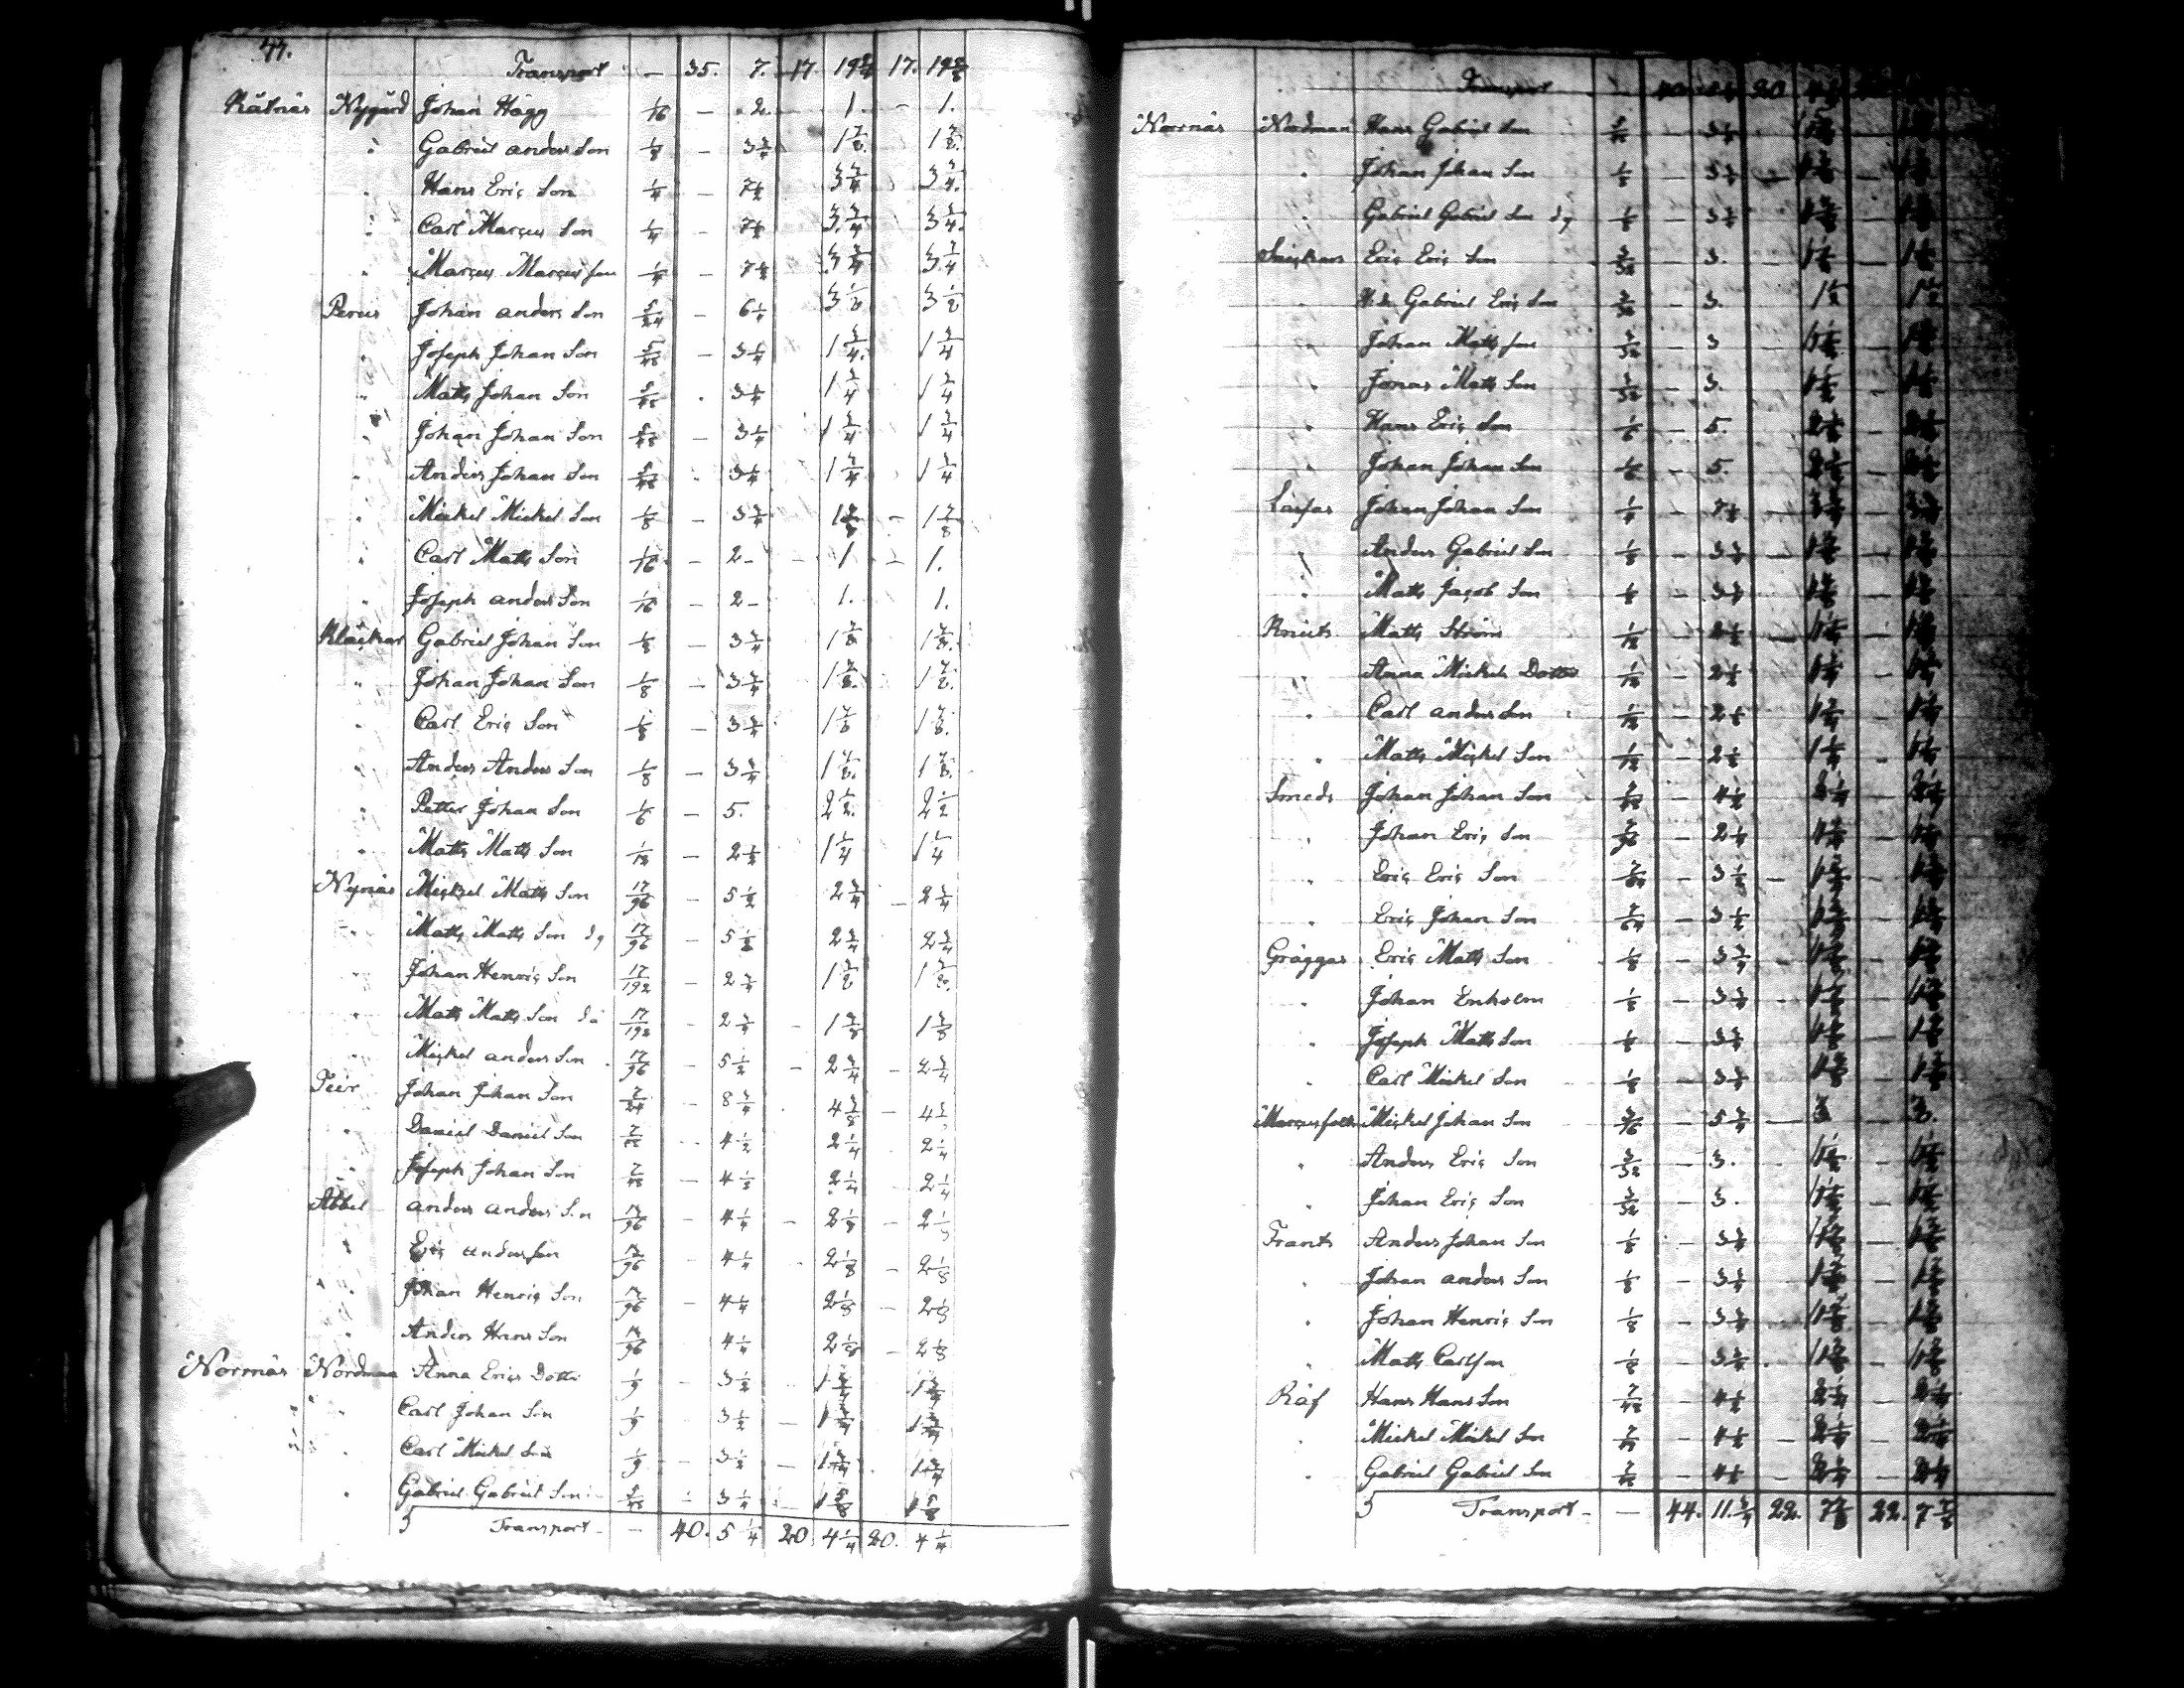 44.
Transport — 35. 7. 17. 19 17. 19
Rätnäs Nygård Johan Hägg 1/16 — 2. 1. — 1.
" Gabriel anders Son 1/8 — 3 3/4 1 7/8 1 7/8
" Hans Eriç Son 1/4 — 7 1/2 3 3/4 3 3/4
" Carl Marçus Son 1/4 — 7 1/2 3 3/4 3 3/4
" Marçus Marçus son 1/4 — 7 1/2 3 3/4 3 3/4
Perus Johan anders Son 5/24 — 6 1/4 3 1/8 3 1/8
" Joseph Johan Son 5/48 — 3 1/4 1 3/4 1 3/4
" Matts Johan Son 5/48 . 3 1/4 1 3/4 1 3/4
" Johan Johan Son 5/48 — 3 1/4 1 3/4 1 3/4
" Anders Johan Son 5/48 . 3 1/4 1 3/4 1 3/4
" Mickel Mickel Son 1/8 — 3 3/4 1 7/8 — 1 7/8
" Carl Matts Son 1/16 — 2 - - 1 - 1.
" Joseph anders Son 1/16 — 2 - 1. 1.
Klåçkar Gabriel Johan Son 1/8 — 3 3/4 1 7/8 1 7/8
" Johan Johan Son 1/8 — 3 3/4 1 7/8 1 7/8
" Carl Eriç Son 1/8 — 3 3/4 1 7/8 1 7/8
" Anders Anders Son 1/8 — 3 3/4 1 7/8 1 7/8
" Petter Johan Son 1/6 — 5. 2 1/2 2 1/2
" Matts Matts Son 1/12 — 2 1/2 1 1/4 1 1/4
Nynäs Miçkel Matts Son 17/96 — 5 1/2 2 3/4 — 2 3/4
" Matts Matts Son dy 17/96 — 5 1/2 2 3/4 2 3/4
" Johan Henriç Son 17/192 — 2 3/4 1 3/8 1 3/8
" Matts Matts Son dä 17/192 — 2 3/4 — 1 3/8 1 3/8
" Miçkel anders Son 17/96 — 5 1/2 — 2 3/4 — 2 3/4
Teir Johan Johan Son 7/24 — 8 3/4 4 3/8 — 4 3/8
" Daniel Daniel Son 7/48 — 4 1/2 2 1/4 2 1/4
" Joseph Johan Son 7/48 — 4 1/2 2 1/4 2 1/4
Abbel anders anders Son 13/96 — 4 1/4 — 2 1/8 — 2 1/8
" Eriç anderson 13/96 — 4 1/4 2 1/8 — 2 1/8
" Johan Henriç Son 13/96 — 4 1/4 2 1/8 — 2 1/8
" Anders Hans Son 13/96 4 1/4 2 1/8 — 2 1/8
Norrnäs Nordman Anna Eriçs Dotter 1/9 — 3 1/2 — 1 3/4 1 3/4
" " Carl Johan Son 1/9 3 1/2 — 1 3/4 1 3/4
" " Carl Mickel Son 1/9 — 3 1/2 — 1 3/4 1 3/4
" Gabriel Gabriel Son 5/48 — 3 1/4 — 1 5/8 1 5/8
Transport — 40. 5 1/4 20 4 1/4 20. 4 1/4
Transport 20
Norrnäs Nordman Hans Gabriel Son
" Johan Johan Son 1/8
" Gabriel Gabriel Son dy 1/8
Eriç Eriç Son 3/32 — 3.
" Gabriel Eriç Son 3/32 — 3. 1 1/2 1 1/2
" Johan Matts son 3/32 — 3 — 1 1/2 1 1/2
" Jonas Matts Son 3/32 — 3. 1 1/2 1 1/2
" Hans Eriç Son 1/6 — 5. 2 1/2 2 1/2
" Johan Johan Son 1/6 — 5. 2 1/2 2 1/2
Lasfar Johan Johan Son 1/4 — 7 1/2 3 3/4 3 3/4
" Anders Gabriel Son 1/8 — 3 3/4 1 7/8 1 7/8
" Matts Jaçob Son 1/8 — 3 3/4 1 7/8 1 7/8
Knuts Matts Ström 1/12 — 2 1/2 — 1 1/4 1 1/4
" Anna Mickels Dotter 1/12 — 2 1/2 1 1/4 1 1/4
" Carl anders Son 1/12 — 2 1/2 1 1/4 1 1/4
" Matts Miçkel Son 1/12 — 2 1/2 1 1/4 1 1/4
Smeds Johan Johan Son 7/48 — 4 1/2 2 1/4 2 1/4
" Johan Eriç Son 7/96 — 2 1/4
" Eriç Eriç Son 7/64 — 3 1/2
" Eriç Johan Son 7/64 — 3 1/2
Gräggas Eriç Matts Son 1/8 — 3 3/4 1 7/8 1 7/8
" Johan Enholm 1/8 — 3 3/4 1 7/8 1 7/8
" Joseph Matts Son 1/8 — 3 3/4 1 7/8 1 7/8
" Carl Mickel Son 1/8 — 3 3/4 1 7/8 1 7/8
Marçusfolk Miçkel Johan Son 3/16 — 5 3/4 — 3 — 3.
" Anders Eriç Son 3/32 — 3. 1 1/2 1 1/2
" Johan Eriç Son 3/32 — 3. 1 1/2 1 1/2
Frants Anders Johan Son 1/8 — 3 3/4 1 7/8 1 7/8
" Johan anders Son 1/8 — 3 3/4 1 7/8 1 7/8
" Johan Henriç Son 1/8 — 3 3/4 1 7/8 1 7/8
" Matts Carlson 1/8 — 3 3/4 1 7/8 1 7/8
Räf Hans Hans Son 7/48 — 4 1/2 2 1/4 2 1/4
" Mickel Mickel Son 7/48 — 4 1/2 2 1/4 2 1/4
" Gabriel Gabriel Son 7/48 — 4 1/2 — 2 1/4 2 1/4
Transport — 44. 11 3/4 22. 7 7/8 22. 7 7/8